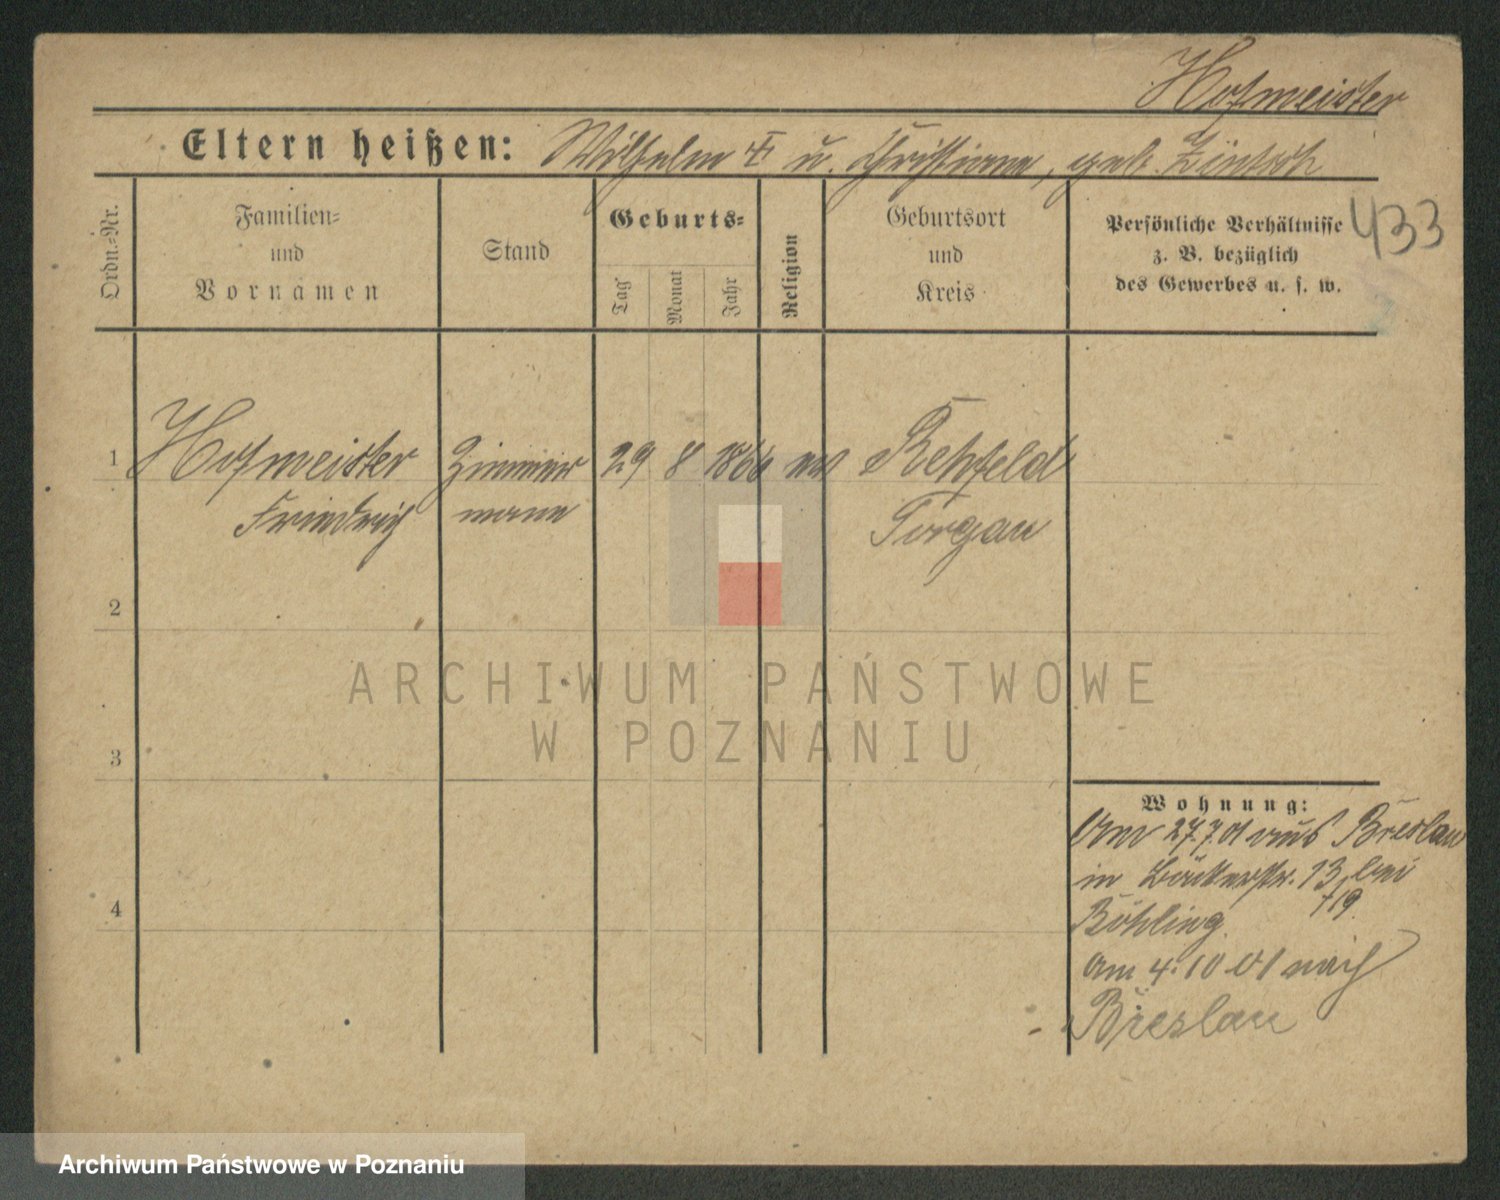 Hofmeister
Eltern heißen: Wilhelm u. Christiane, geb.
433
Ordn.-Nr.
Familien-
und
Vornamen
Stand
Geburts-
Tag
Monat
Jahr
Religion
Geburtsort
und
Kreis
Persönliche Verhältnisse
z. B. bezüglich
des Gewerbes u. s. w.
1 Hofmeister Zimmer 29 8 1866 ev Rehfeld
Friedrich mann Torgau
2
3
4
Wohnung:
Am 27.7.01 aus Breslau
in 13 bei
Böhling 719.
am 4.10 01 nach
Breslau
ARCHIWUM PAŃSTWOWE
W POZNANIU
Archiwum Państwowe w Poznaniu